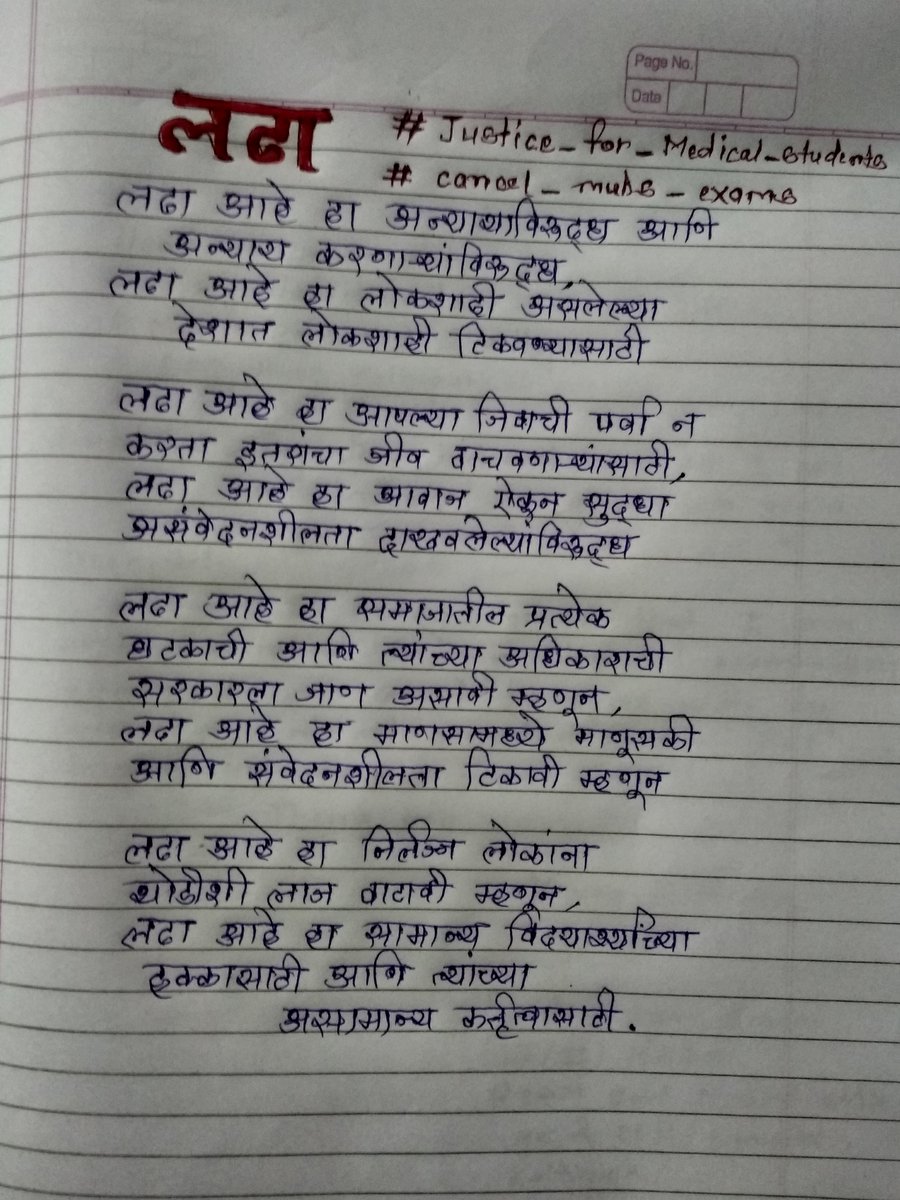 Page No.
Date
लढा
# Justice_for_Medical_students
# cancel_muhs_exams
लढा आहे हा अन्यायाविरुद्ध आणि
अन्याय करणाऱ्यांविरुद्ध,
लढा आहे हा लोकशाही असलेल्या
देशात लोकशाही टिकवण्यासाठी
लढा आहे हा आपल्या जिवाची पर्वा न
करता इतरांचा जीव वाचवणाऱ्यांसाठी,
लढा आहे हा आवाज ऐकून सुद्धा
असंवेदनशीलता दाखवलेल्यांविरुद्ध
लढा आहे हा समाजातील प्रत्येक
घटकाची आणि त्यांच्या अधिकाराची
सरकारला जाण असावी म्हणून,
लढा आहे हा माणसामध्ये माणूसकी
आणि संवेदनशीलता टिकावी म्हणून
लढा आहे हा निर्लज्ज लोकांना
थोडीशी लाज वाटावी म्हणून,
लढा आहे हा सामान्य विद्यार्थ्यांच्या
हक्कासाठी आणि त्यांच्या
असामान्य कर्तृत्वासाठी.